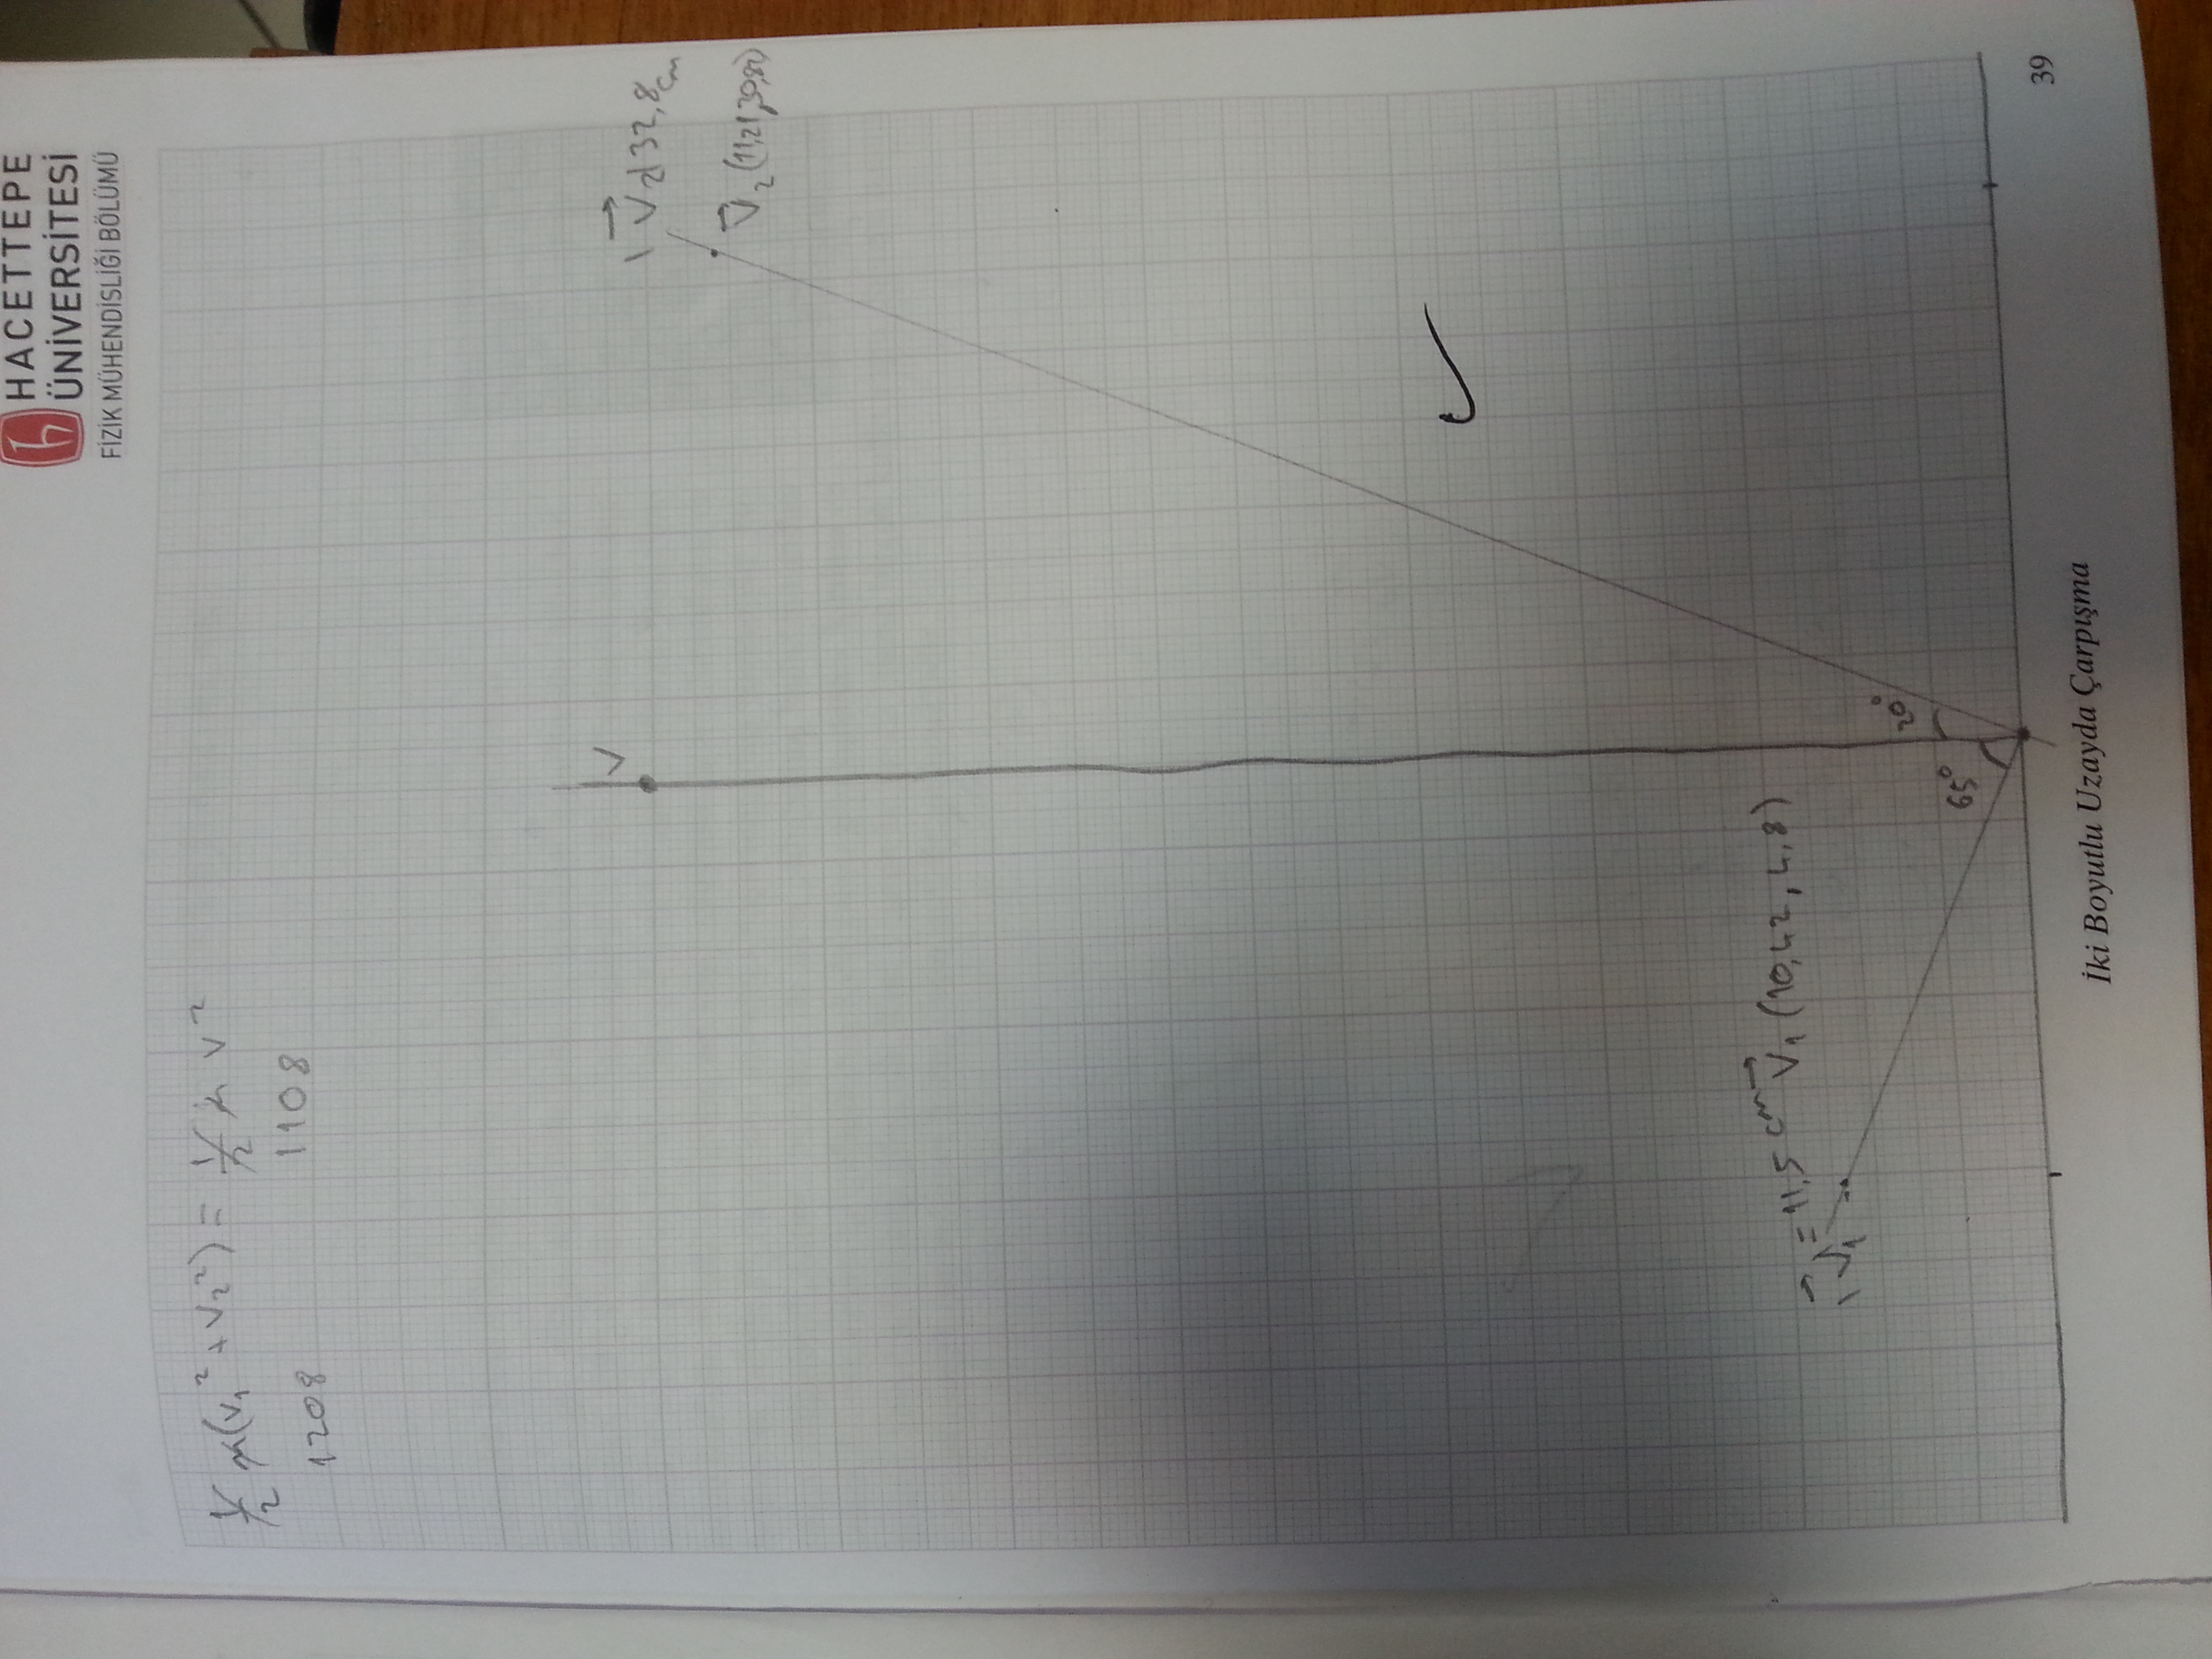 HACETTEPE
ÜNİVERSİTESİ
FİZİK MÜHENDİSLİĞİ BÖLÜMÜ
1/2 m(v₁² + v₂²) = 1/2 m v²
1208 1108
V
|V₂| 32,8 cm
V₂ (11,21, 30,82)
|V₁| = 11,5 cm V₁ (10,42, 4,8)
65° 20°
39
İki Boyutlu Uzayda Çarpışma